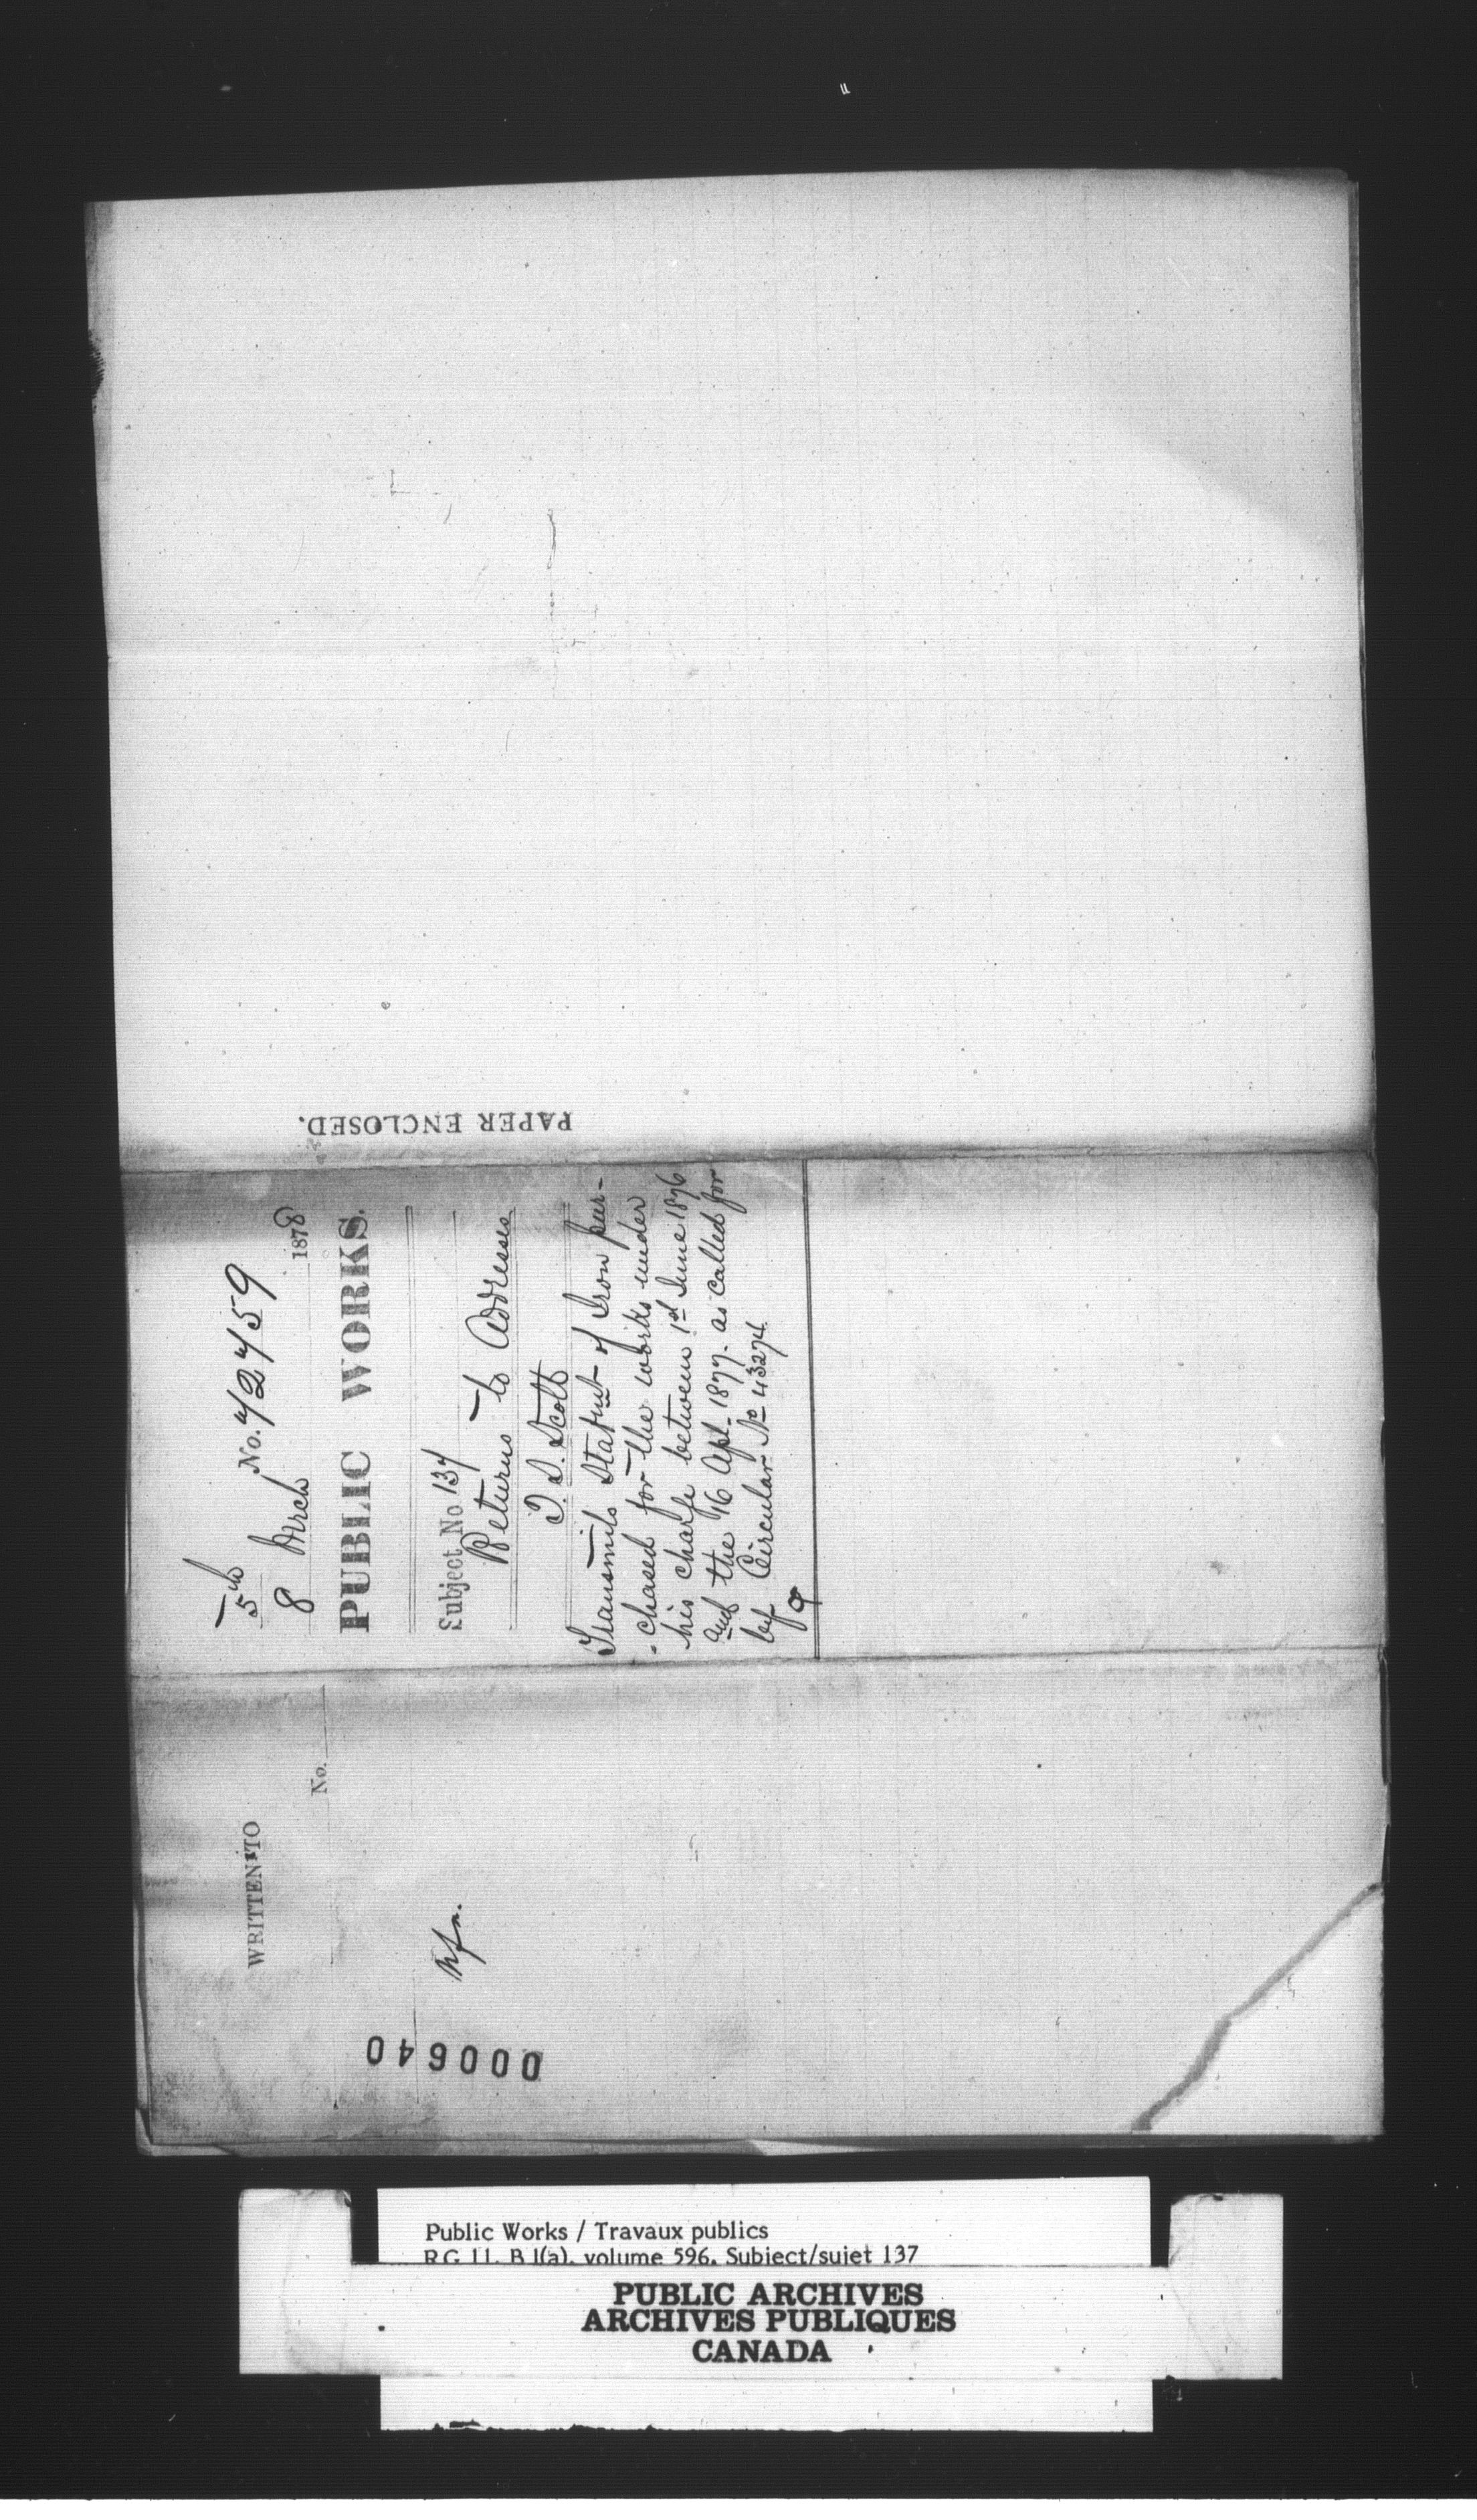 5th
No. 72759
8 Mrch 1878
PUBLIC WORKS.
Subject No 137
Returns to Addresses
T. S. Scott
Transmits Statmt of Iron pur-
-chased for the works under
his charge between 1st June 1876
and the 16 Apl. 1877. as called for
by Circular No 43274.
PAPER ENCLOSED.
WRITTEN TO
No.
000640
Public Works / Travaux publics
RG 11, B 1(a), volume 596, Subject/sujet 137
PUBLIC ARCHIVES
ARCHIVES PUBLIQUES
CANADA